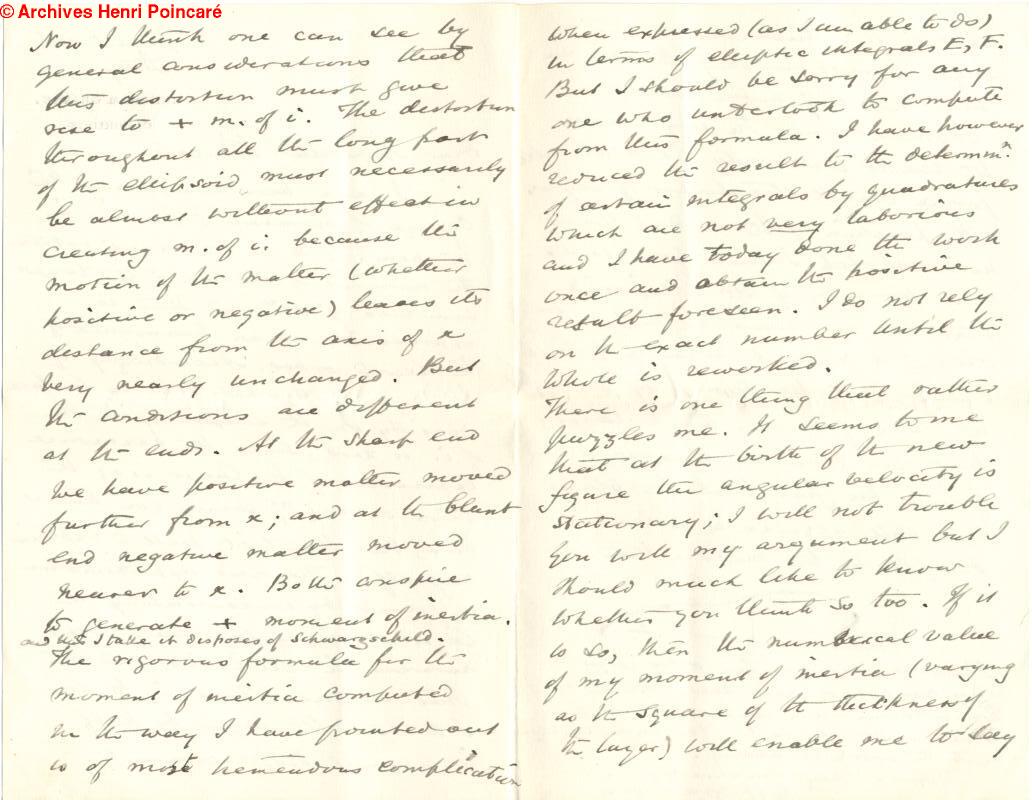 © Archives Henri Poincaré
Now I think one can see by
general considerations that
this distortion must give
rise to + m. of i. The distortion
throughout all the long part
of the ellipsoid must necessarily
be almost without effect in
creating m. of i. because the
motion of the matter (whether
positive or negative) leaves its
distance from the axis of x
very nearly unchanged. But
the conditions are different
at the ends. At the sharp end
we have positive matter moved
further from x; and at the blunt
end negative matter moved
nearer to x. Both conspire
to generate + moment of inertia.
and this I take it disposes of Schwarzschild.
The rigorous formula for the
moment of inertia computed
in the way I have pointed out
is of most tremendous complication
when expressed (as I am able to do)
in terms of elliptic integrals E, F.
But I should be sorry for any
one who undertook to compute
from this formula. I have however
reduced the result to the determinn.
of certain integrals by quadratures
which are not very laborious
and I have today done the work
once and obtain the positive
result foreseen. I do not rely
on the exact number until the
whole is reworked.
There is one thing that rather
puzzles me. It seems to me
that at the birth of the new
figure the angular velocity is
stationary; I will not trouble
you with my argument but I
should much like to know
whether you think so too. If it
is so, then the numerical value
of my moment of inertia (varying
as the square of the thickness of
the layer) will enable me to say